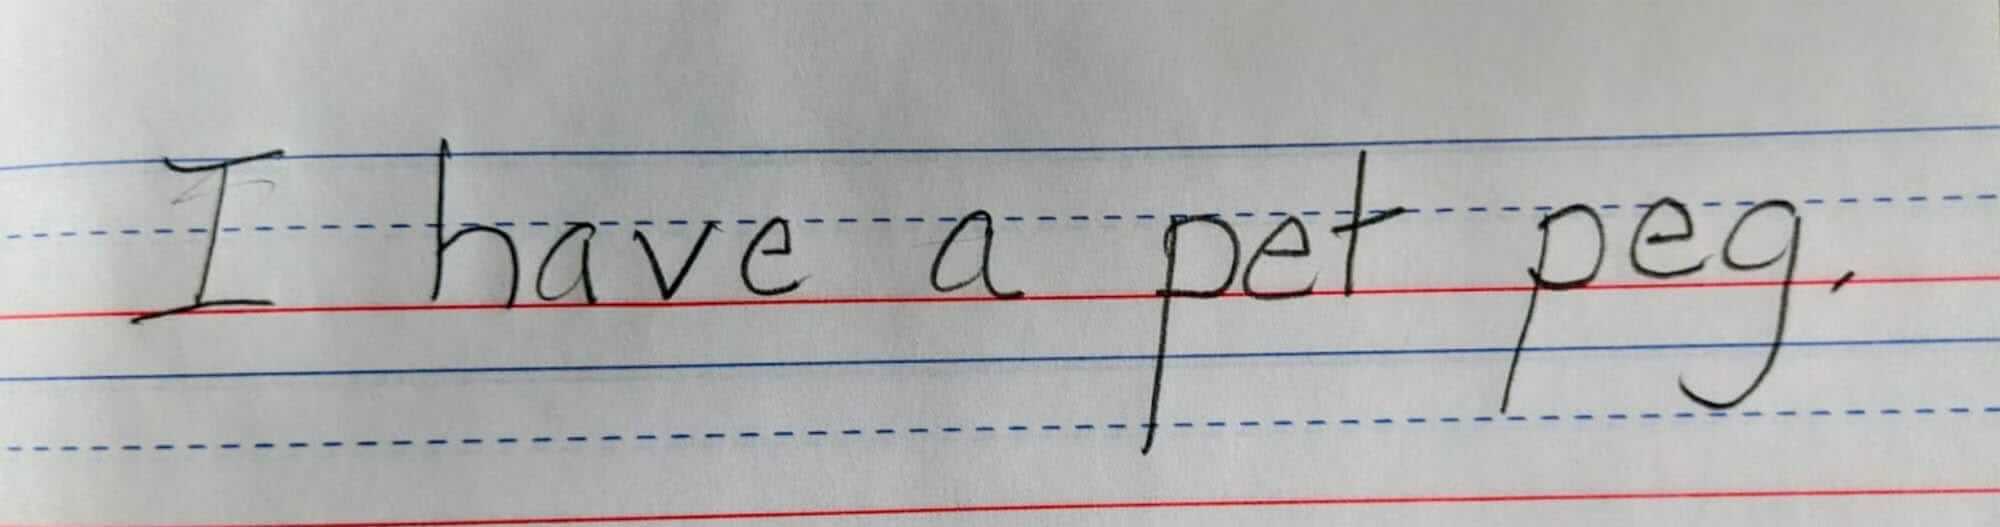 I have a pet peg.